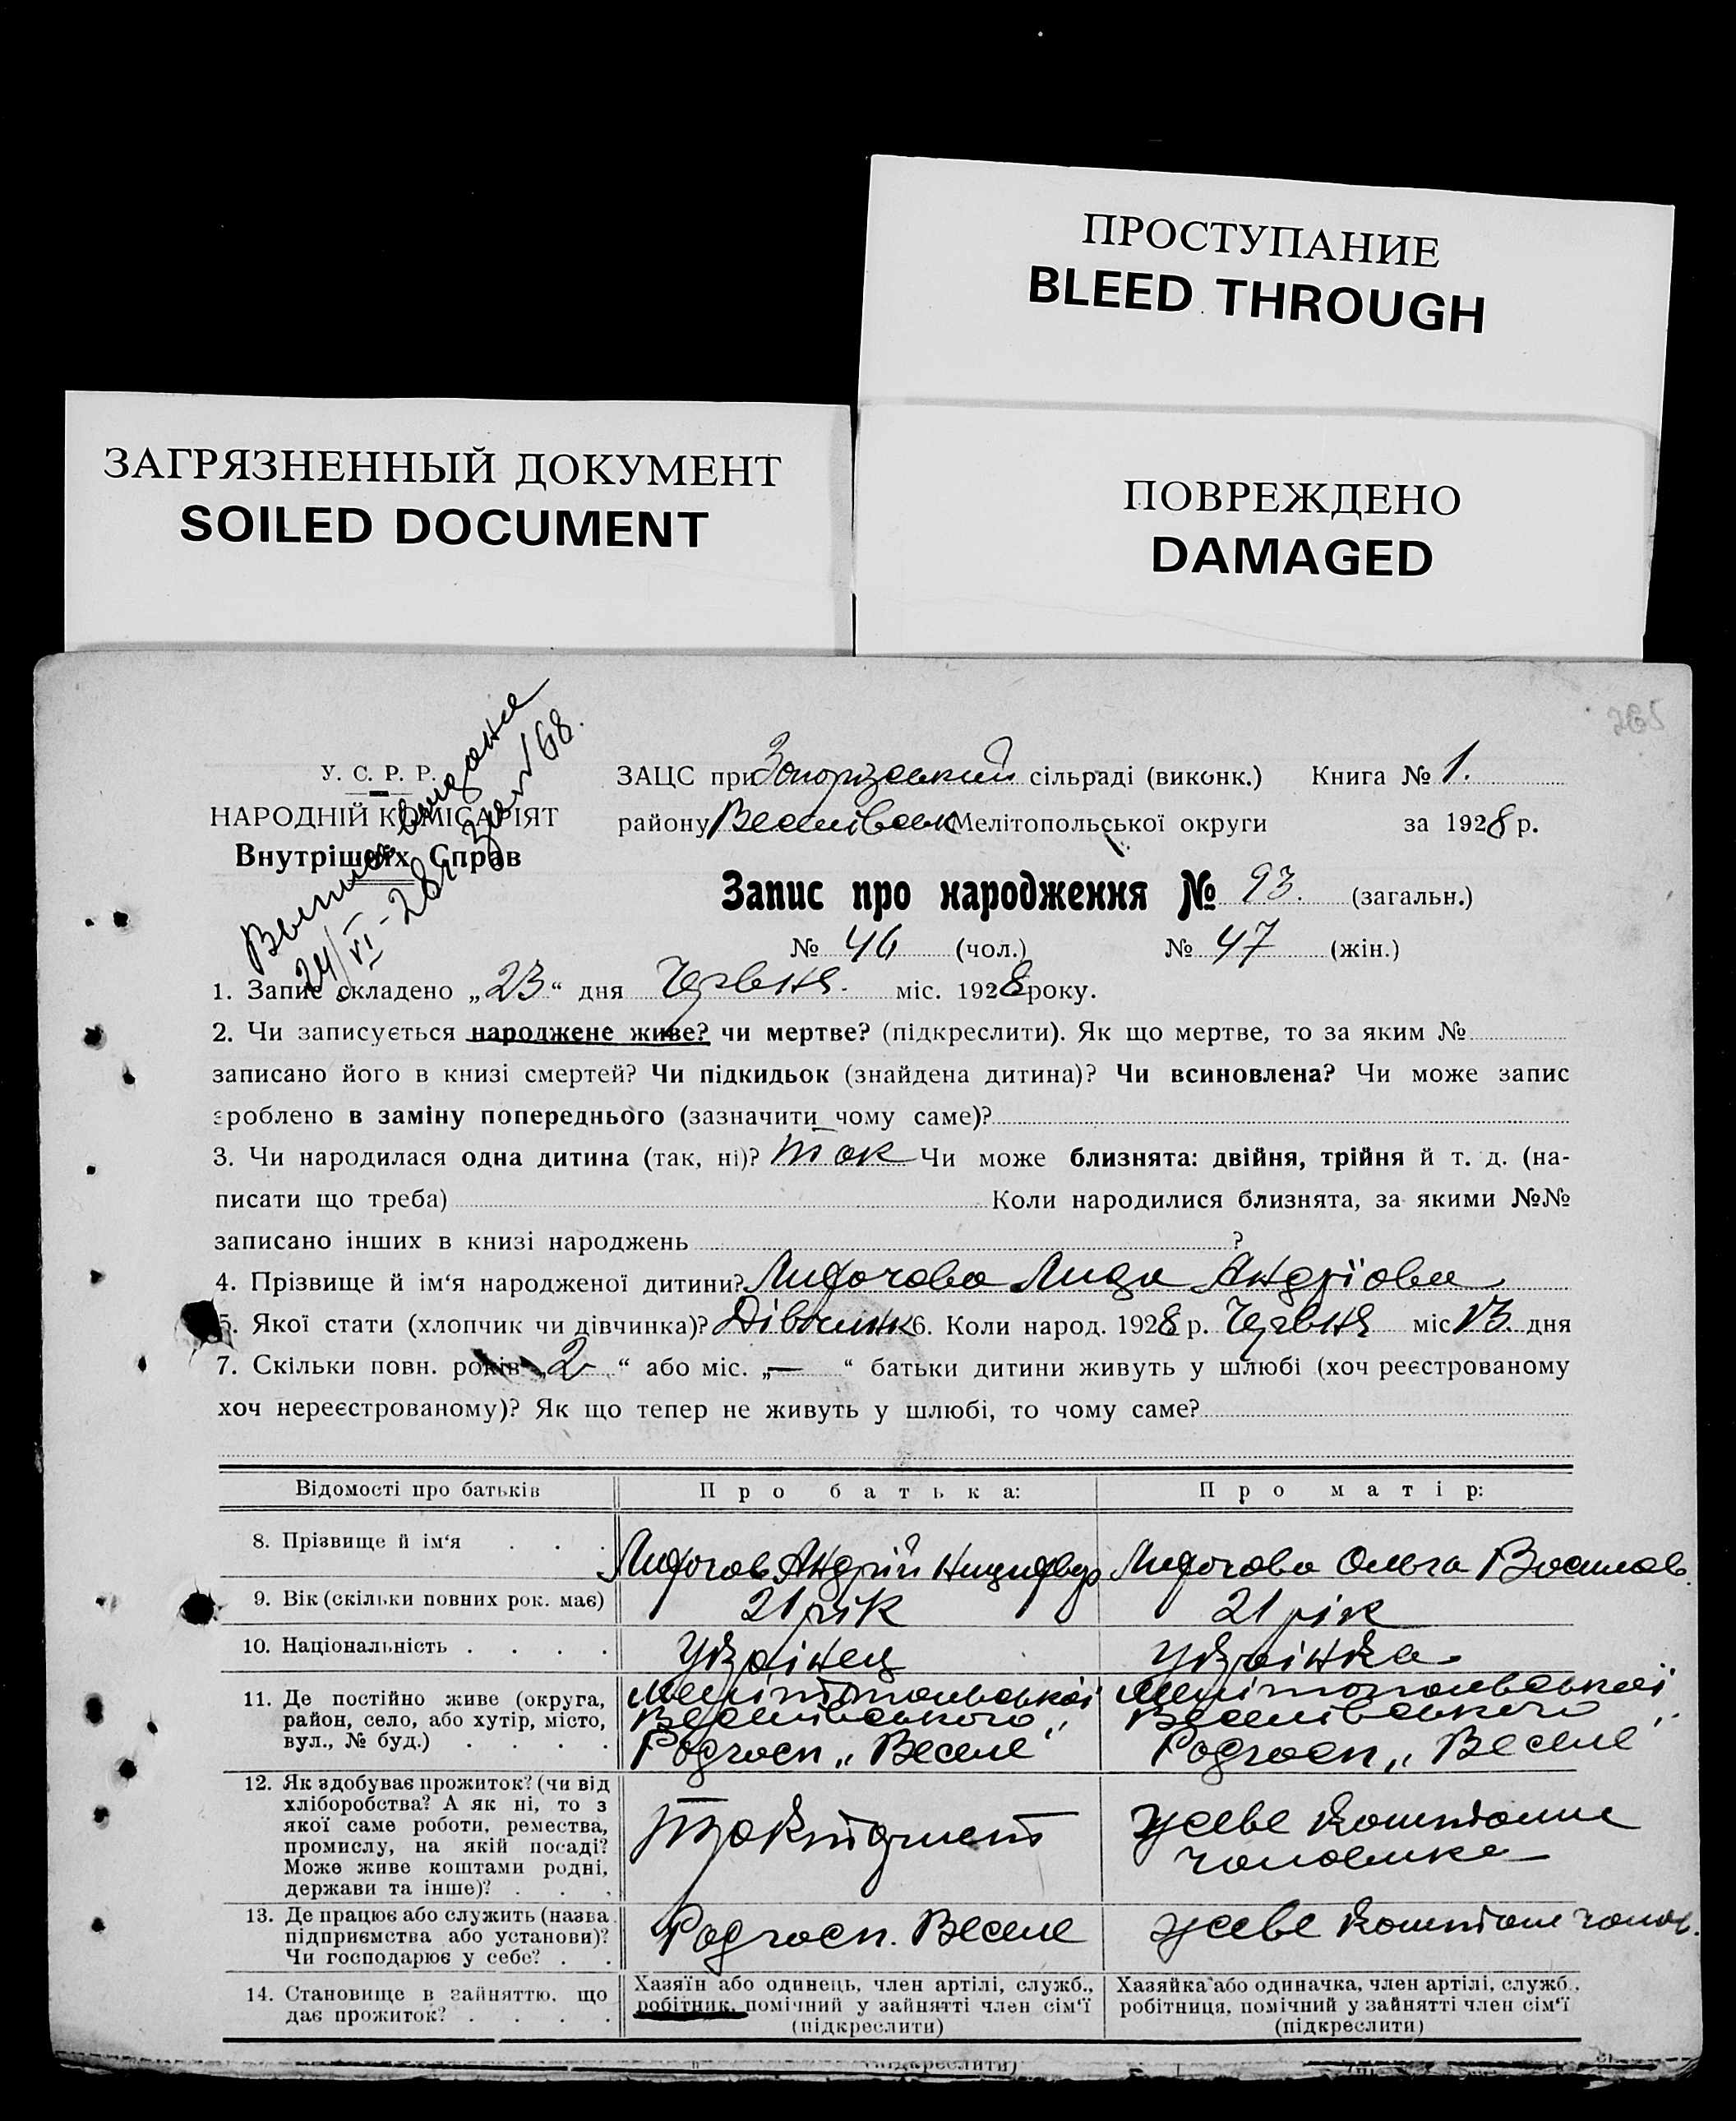 ПРОСТУПАНИЕ
BLEED THROUGH
ЗАГРЯЗНЕННЫЙ ДОКУМЕНТ
SOILED DOCUMENT
ПОВРЕЖДЕНО
DAMAGED
У. С. Р. Р.
НАРОДНІЙ КОМІСАРІЯТ
Внутрішніх Справ
24/VI-28 168.
ЗАЦС при сільраді (виконк.) Книга № 1.
району Веселівськ Мелітопольської округи за 1928 р.
Запис про народження № 93. (загальн.)
№ 46 (чол.) № 47 (жін.)
1. Запис складено „23“ дня Червня міс. 1928 року.
2. Чи записується народжене живе? чи мертве? (підкреслити). Як що мертве, то за яким №
записано його в книзі смертей? Чи підкидьок (знайдена дитина)? Чи всиновлена? Чи може запис
зроблено в заміну попереднього (зазначити чому саме)?
3. Чи народилася одна дитина (так, ні)? так Чи може близнята: двійня, трійня й т. д. (на-
писати що треба) Коли народилися близнята, за якими №№
записано інших в книзі народжень ?
4. Прізвище й ім‘я народженої дитини? Лида Андріова
5. Якої стати (хлопчик чи дівчинка)? Дівчинк 6. Коли народ. 1928 р. Червня міс 13. дня
7. Скільки повн. років „2“ або міс. „—“ батьки дитини живуть у шлюбі (хоч реєстрованому
хоч нереєстрованому)? Як що тепер не живуть у шлюбі, то чому саме?
Відомості про батьків Про батька: Про матір:
8. Прізвище й ім‘я . . . Андрій Ольга Василов.
9. Вік (скільки повних рок. має) 21 рік 21 рік
10. Національність . . . . Українец Українка
11. Де постійно живе (округа, Мелітопольськоі Мелітопольськоі
район, село, або хутір, місто, Веселівського „ Веселівського „
вул., № буд.) . . . . Радгосп „Веселе“ Радгосп „Веселе“
12. Як здобуває прожиток? (чи від
хліборобства? А як ні, то з
якої саме роботи, ремества, живе коштами
промислу, на якій посаді? чоловика
Може живе коштами родні,
держави та інше)? . . .
13. Де працює або служить (назва Радгосп. Веселе живе коштами чолов.
підприємства або установи)?
Чи господарює у себе? . .
14. Становище в зайняттю, що Хазяїн або одинець, член артілі, служб., Хазяйка або одиначка, член артілі, служб.,
дає прожиток? . . . . робітник, помічний у зайнятті член сім‘ї робітниця, помічний у зайнятті член сім‘ї
(підкреслити) (підкреслити)
(підкреслити)